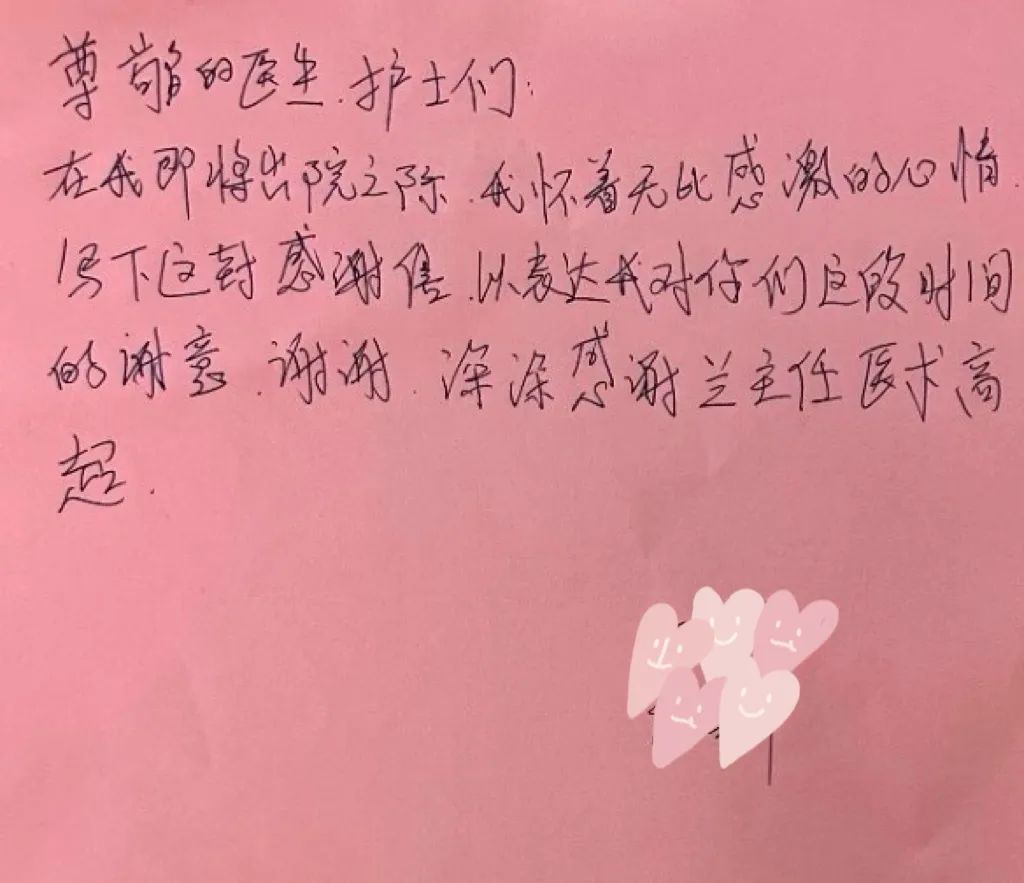 尊敬的医生.护士们:
在我即将出院之际.我怀着无比感激的心情.
写下这封感谢信.以表达我对你们这段时间
的谢意.谢谢.深深感谢兰主任医术高
超.